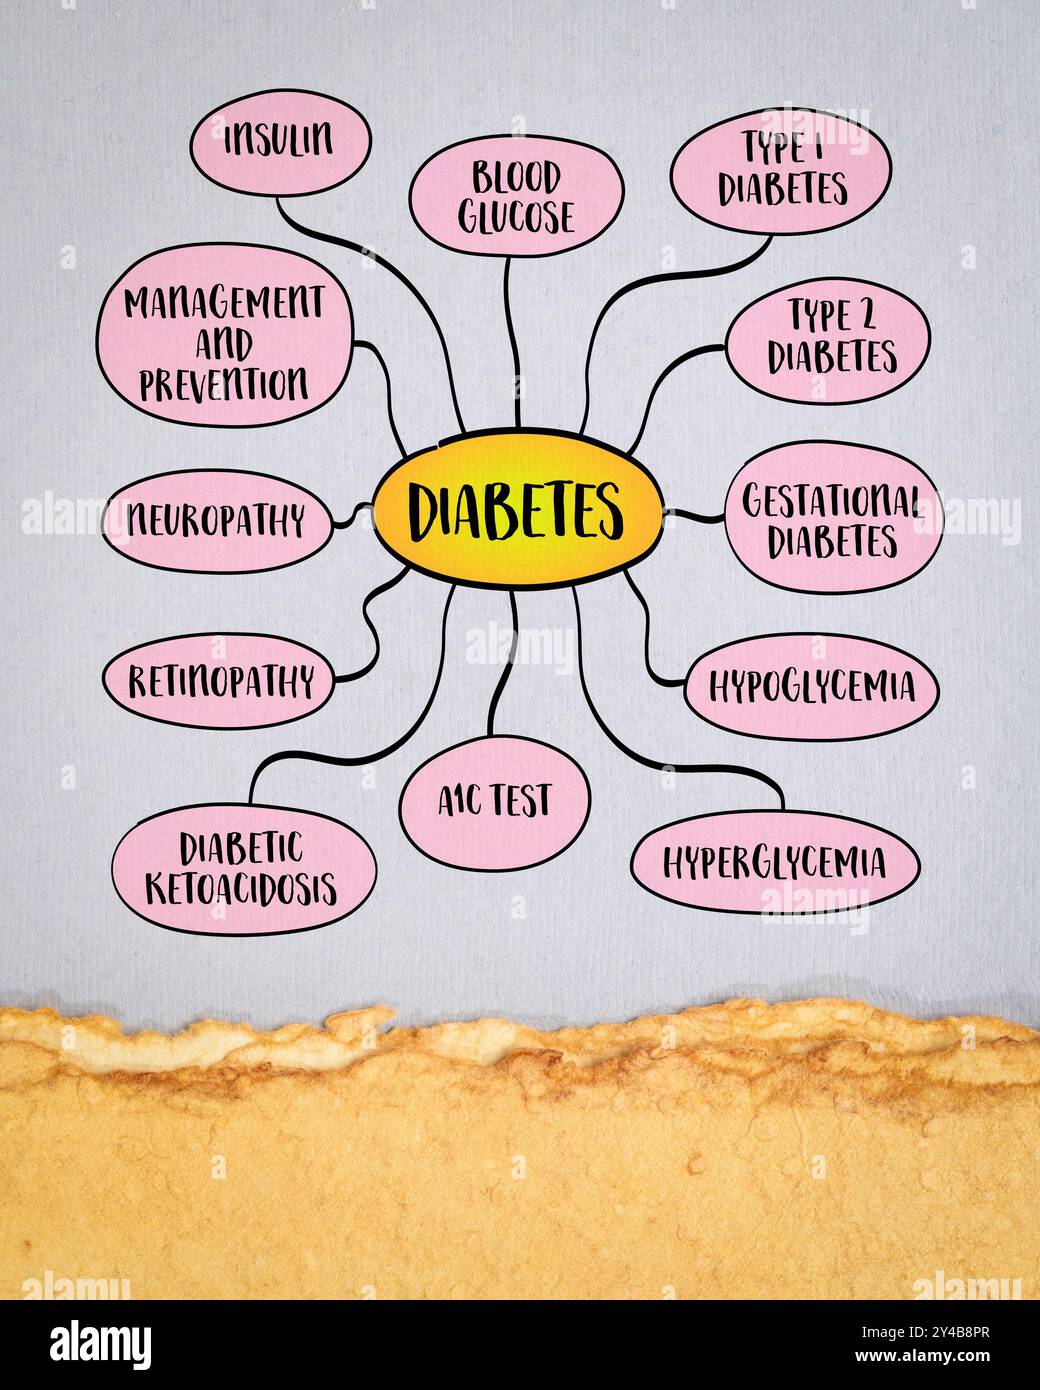 INSULIN
BLOOD
GLUCOSE
TYPE 1
DIABETES
MANAGEMENT
AND
PREVENTION
TYPE 2
DIABETES
NEUROPATHY
DIABETES
GESTATIONAL
DIABETES
RETINOPATHY
HYPOGLYCEMIA
A1C TEST
DIABETIC
KETOACIDOSIS
HYPERGLYCEMIA
alamy
a
alamy
Image ID: 2Y4B8PR
www.alamy.com